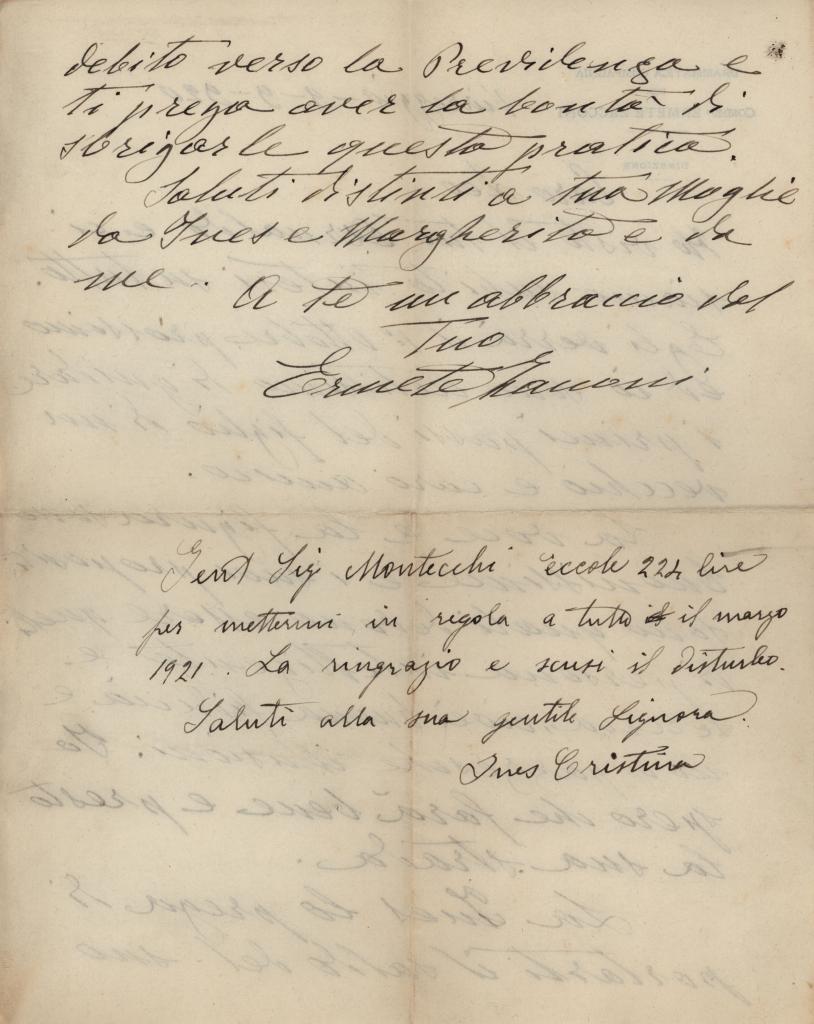 debito verso la Previdenza e
ti prega aver la bontà di
sbrigarle questa pratica.
Saluti distinti a tua Moglie
da Ines e Margherita e da
me.
A te un abbraccio dal
Tuo
Ermete Zacconi
Gent Sig Montecchi eccole 224 lire
per mettermi in regola a tutto il marzo
1921. La ringrazio e scusi il disturbo.
Saluti alla sua gentile Signora.
Ines Cristina